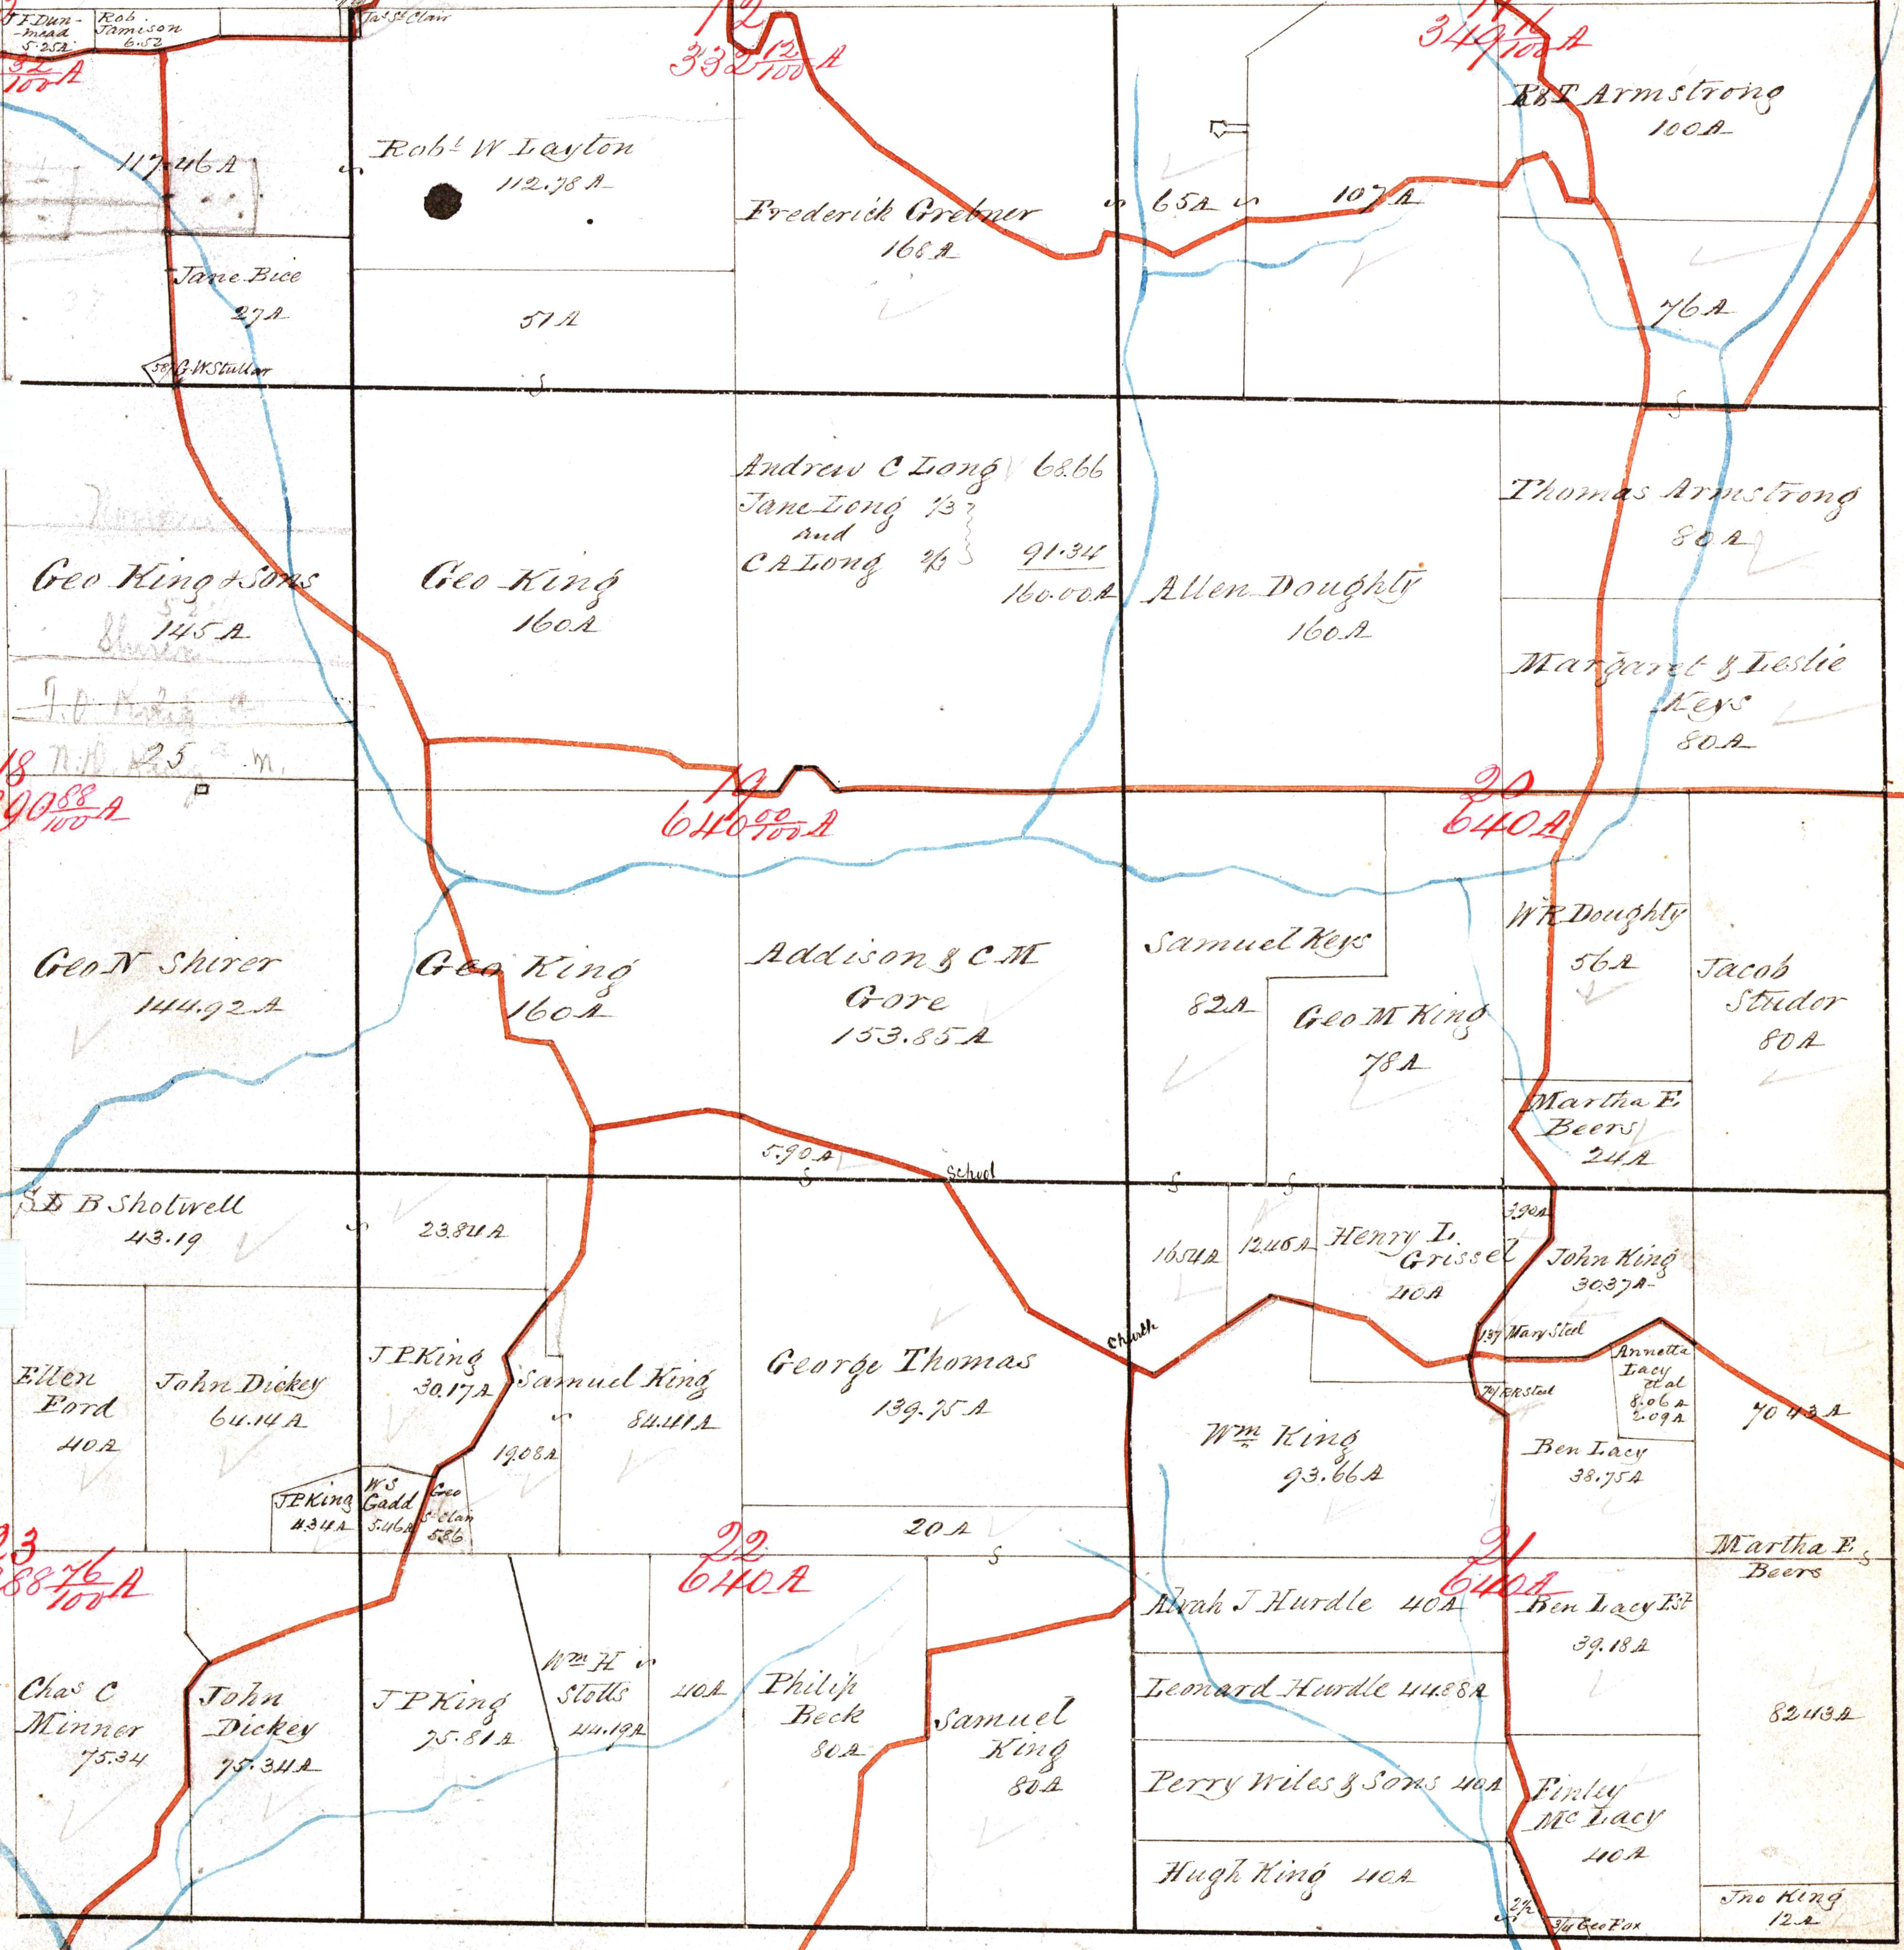 J F Dun-
-mead
5.25A
Rob.
Jamison
6.52
Jas St Clair
12
332 12/100 A
349 16/100 A
32/100 A
R & T Armstrong
100 A
117.46 A
Robt W Layton
112.78 A
Frederick Grebner
168 A
65 A
107 A
Jane Bice
27 A
51 A
76 A
G W Stullar
Andrew C Long 68.66
Jane Long 1/3
and
C A Long 2/3
91.34
160.00 A
Thomas Armstrong
80 A
Geo King & Sons
145 A
Geo King
160 A
Allen Doughty
160 A
Margaret & Leslie
Keys
80 A
25
18
90 88/100 A
19
640 00/100 A
20
640 A
Geo N Shirer
144.92 A
Geo King
160 A
Addison & C M
Gore
153.85 A
Samuel Keys
82 A
Geo M King
78 A
W R Doughty
56 A
Jacob
Studor
80 A
Martha E.
Beers
24 A
5.90 A
School
S D B Shotwell
43.19
23.84 A
16.54 A
12.46 A
Henry L.
Grissel
40 A
3.90 A
John King
30.37 A
Church
137 Mary Steel
Ellen
Ford
40 A
John Dickey
64.14 A
J P King
30.17 A
Samuel King
84.41 A
19.08 A
George Thomas
139.75 A
R R Steel
Annetta
Lacy
et al
8.06 A
2.09 A
70 43 A
Wm King
93.66 A
Ben Lacy
38.75 A
J P King
4.34 A
W S
Gadd
5.46 A
Geo
St Clair
5.86
20 A
23
88 76/100 A
22
640 A
21
640 A
Martha E.
Beers
Alvah J Hurdle 40 A
Ben Lacy Est
39.18 A
Chas C
Minner
75.34
John
Dickey
75.34 A
J P King
75.81 A
Wm H
Stotts
44.19 A
40 A
Philip
Beck
80 A
Samuel
King
80 A
Leonard Hurdle 44.88 A
82 43 A
Perry Wiles & Sons 40 A
Finley
Mc Lacy
40 A
Hugh King 40 A
2 1/2
3/4 Geo Fox
Jno King
12 A